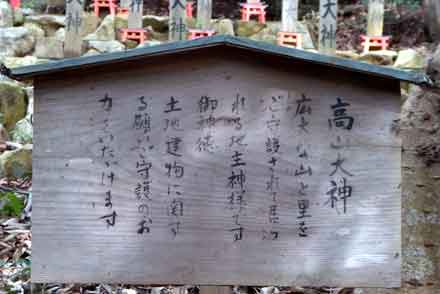 高山大神
広大な山と里を
ご守護されて居ら
れる地主神様です
御神徳
土地建物に関す
る願い守護のお
力をいただけます
大神
大神
大神